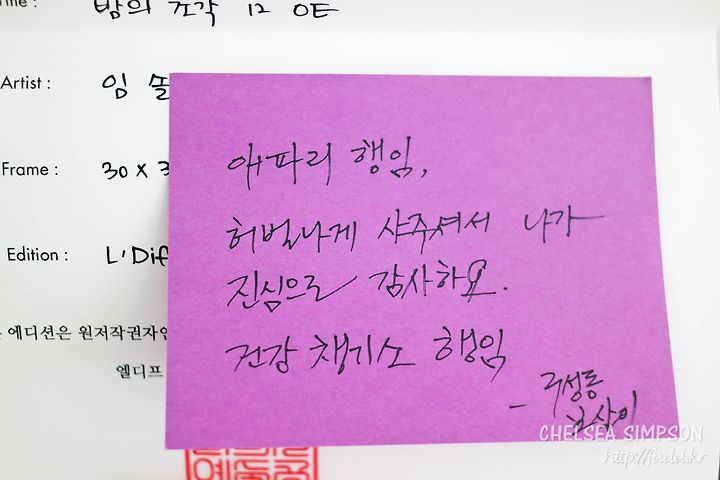 Title : 밤의 조각 12 OE
Artist : 임 솔
Frame : 30 x 3
Edition : L'Dif
에디션은 원저작권자인
엘디프
애파리 행임,
허벌나게 사주셔서 나가
진심으로 감사하요.
건강 챙기소 행임
- 구성동
보살이
CHELSEA SIMPSON
http://fudd.kr